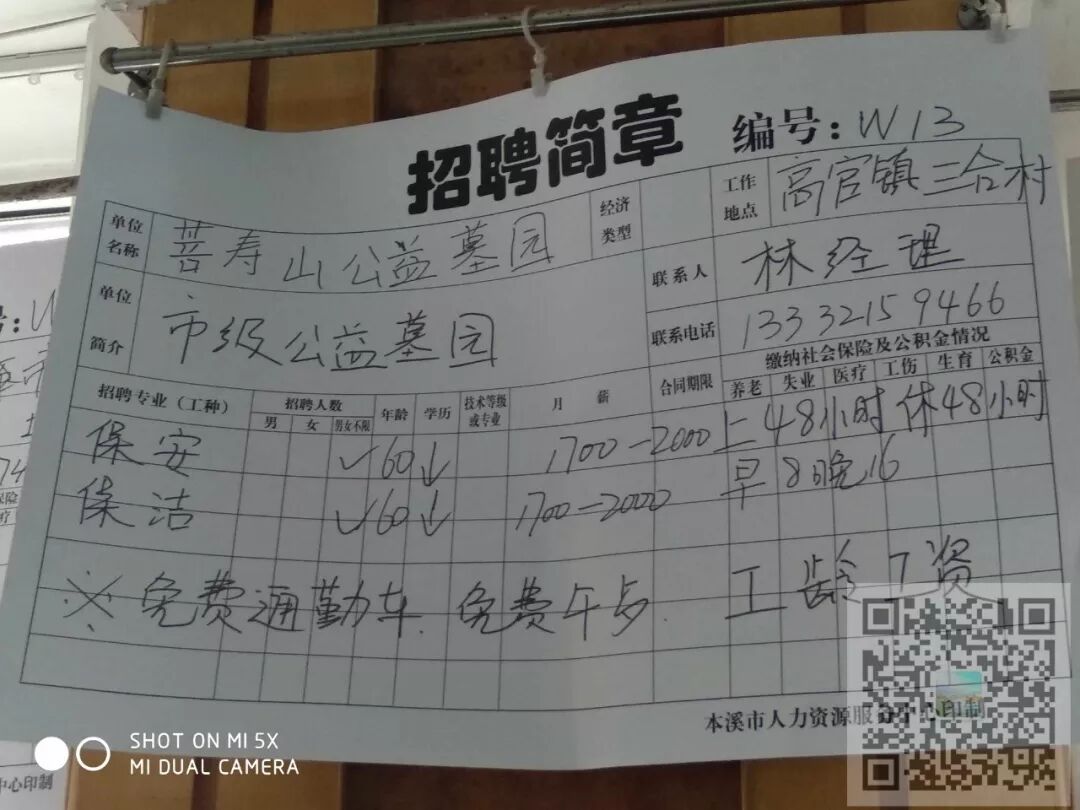 招聘简章 编号：W13
单位名称 善寿山公益墓园 经济类型 工作地点 高官镇三合村
联系人 林经理
单位简介 市级公益墓园 联系电话 13332159466
招聘专业（工种） 招聘人数 年龄 学历 技术等级或专业 月薪 合同期限 缴纳社会保险及公积金情况
男 女 男女不限 养老 失业 医疗 工伤 生育 公积金
保安 ✓ 60↓ 1700-2000 上48小时休48小时
保洁 ✓ 60↓ 1700-2000 早8晚16
※免费通勤车.免费午歺. 工龄工资
本溪市人力资源服务中心印制
SHOT ON MI 5X
MI DUAL CAMERA
中心印制